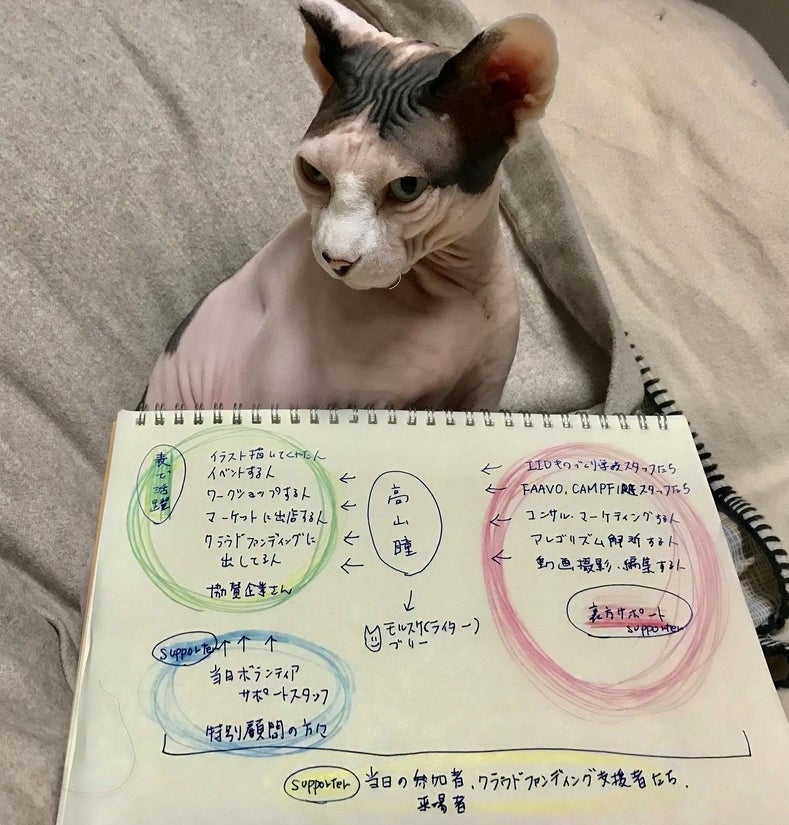 表で活躍
イラスト描いてくれた人
イベントする人
ワークショップする人
マーケットに出店する人
クラウドファンディングに
出してる人
協賛企業さん
高山瞳
モルスケ(ライター)
ブリー
IIDものづくり学校スタッフたち
FAAVO, CAMPFIREスタッフたち
コンサル・マーケティングする人
アルゴリズム解析する人
動画撮影・編集する人
裏方サポート
supporter
supporter
当日ボランティア
サポートスタッフ
特別顧問の方々
supporter 当日の参加者、クラウドファンディング支援者たち、
来場者